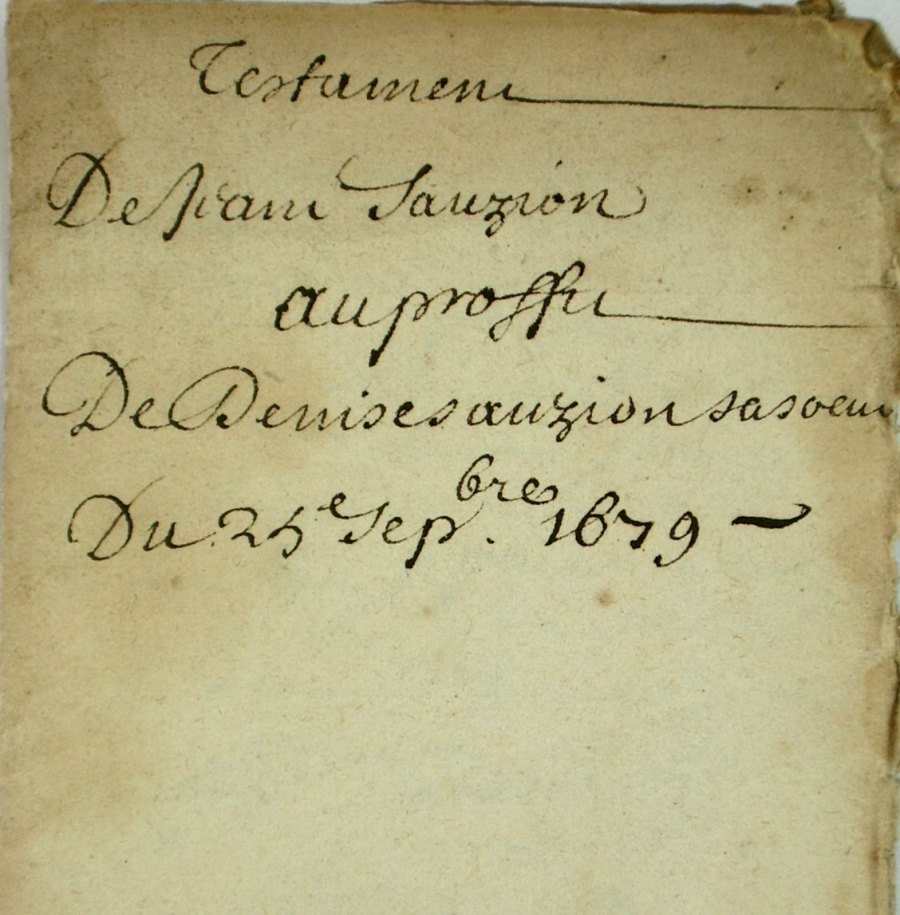 Testament
De Jean Sauzion
au proffit
De Denise sauzion sa soeur
Du 25e Sepbre. 1679